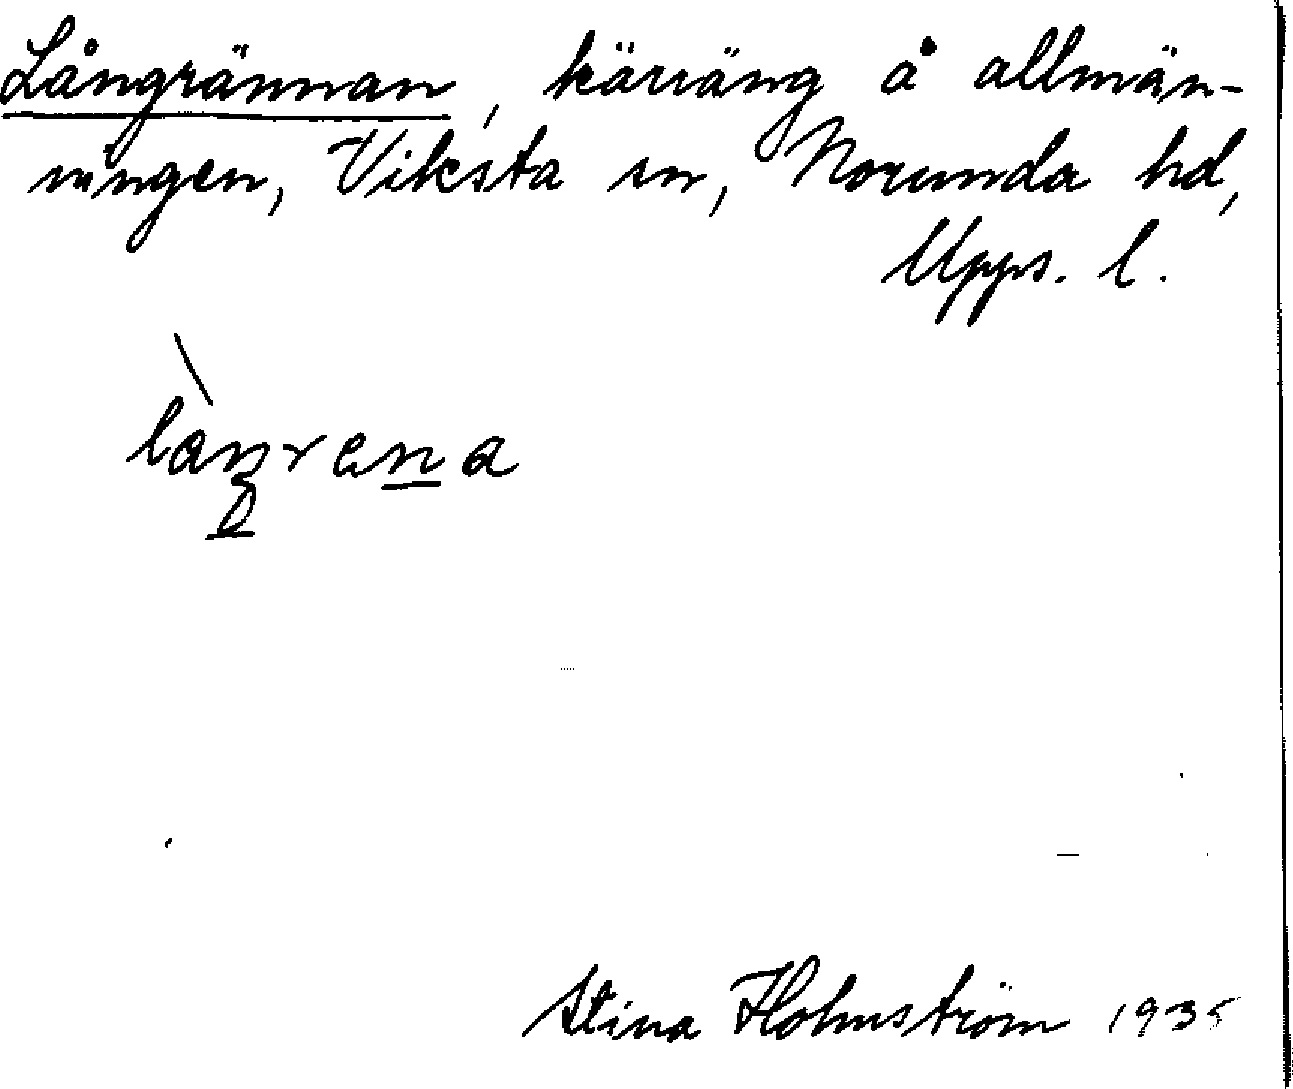 Långrännan, kärräng å allmän-
ningen, Viksta sn, Norunda hd,
Upps. l.
Stina Holmström 1935